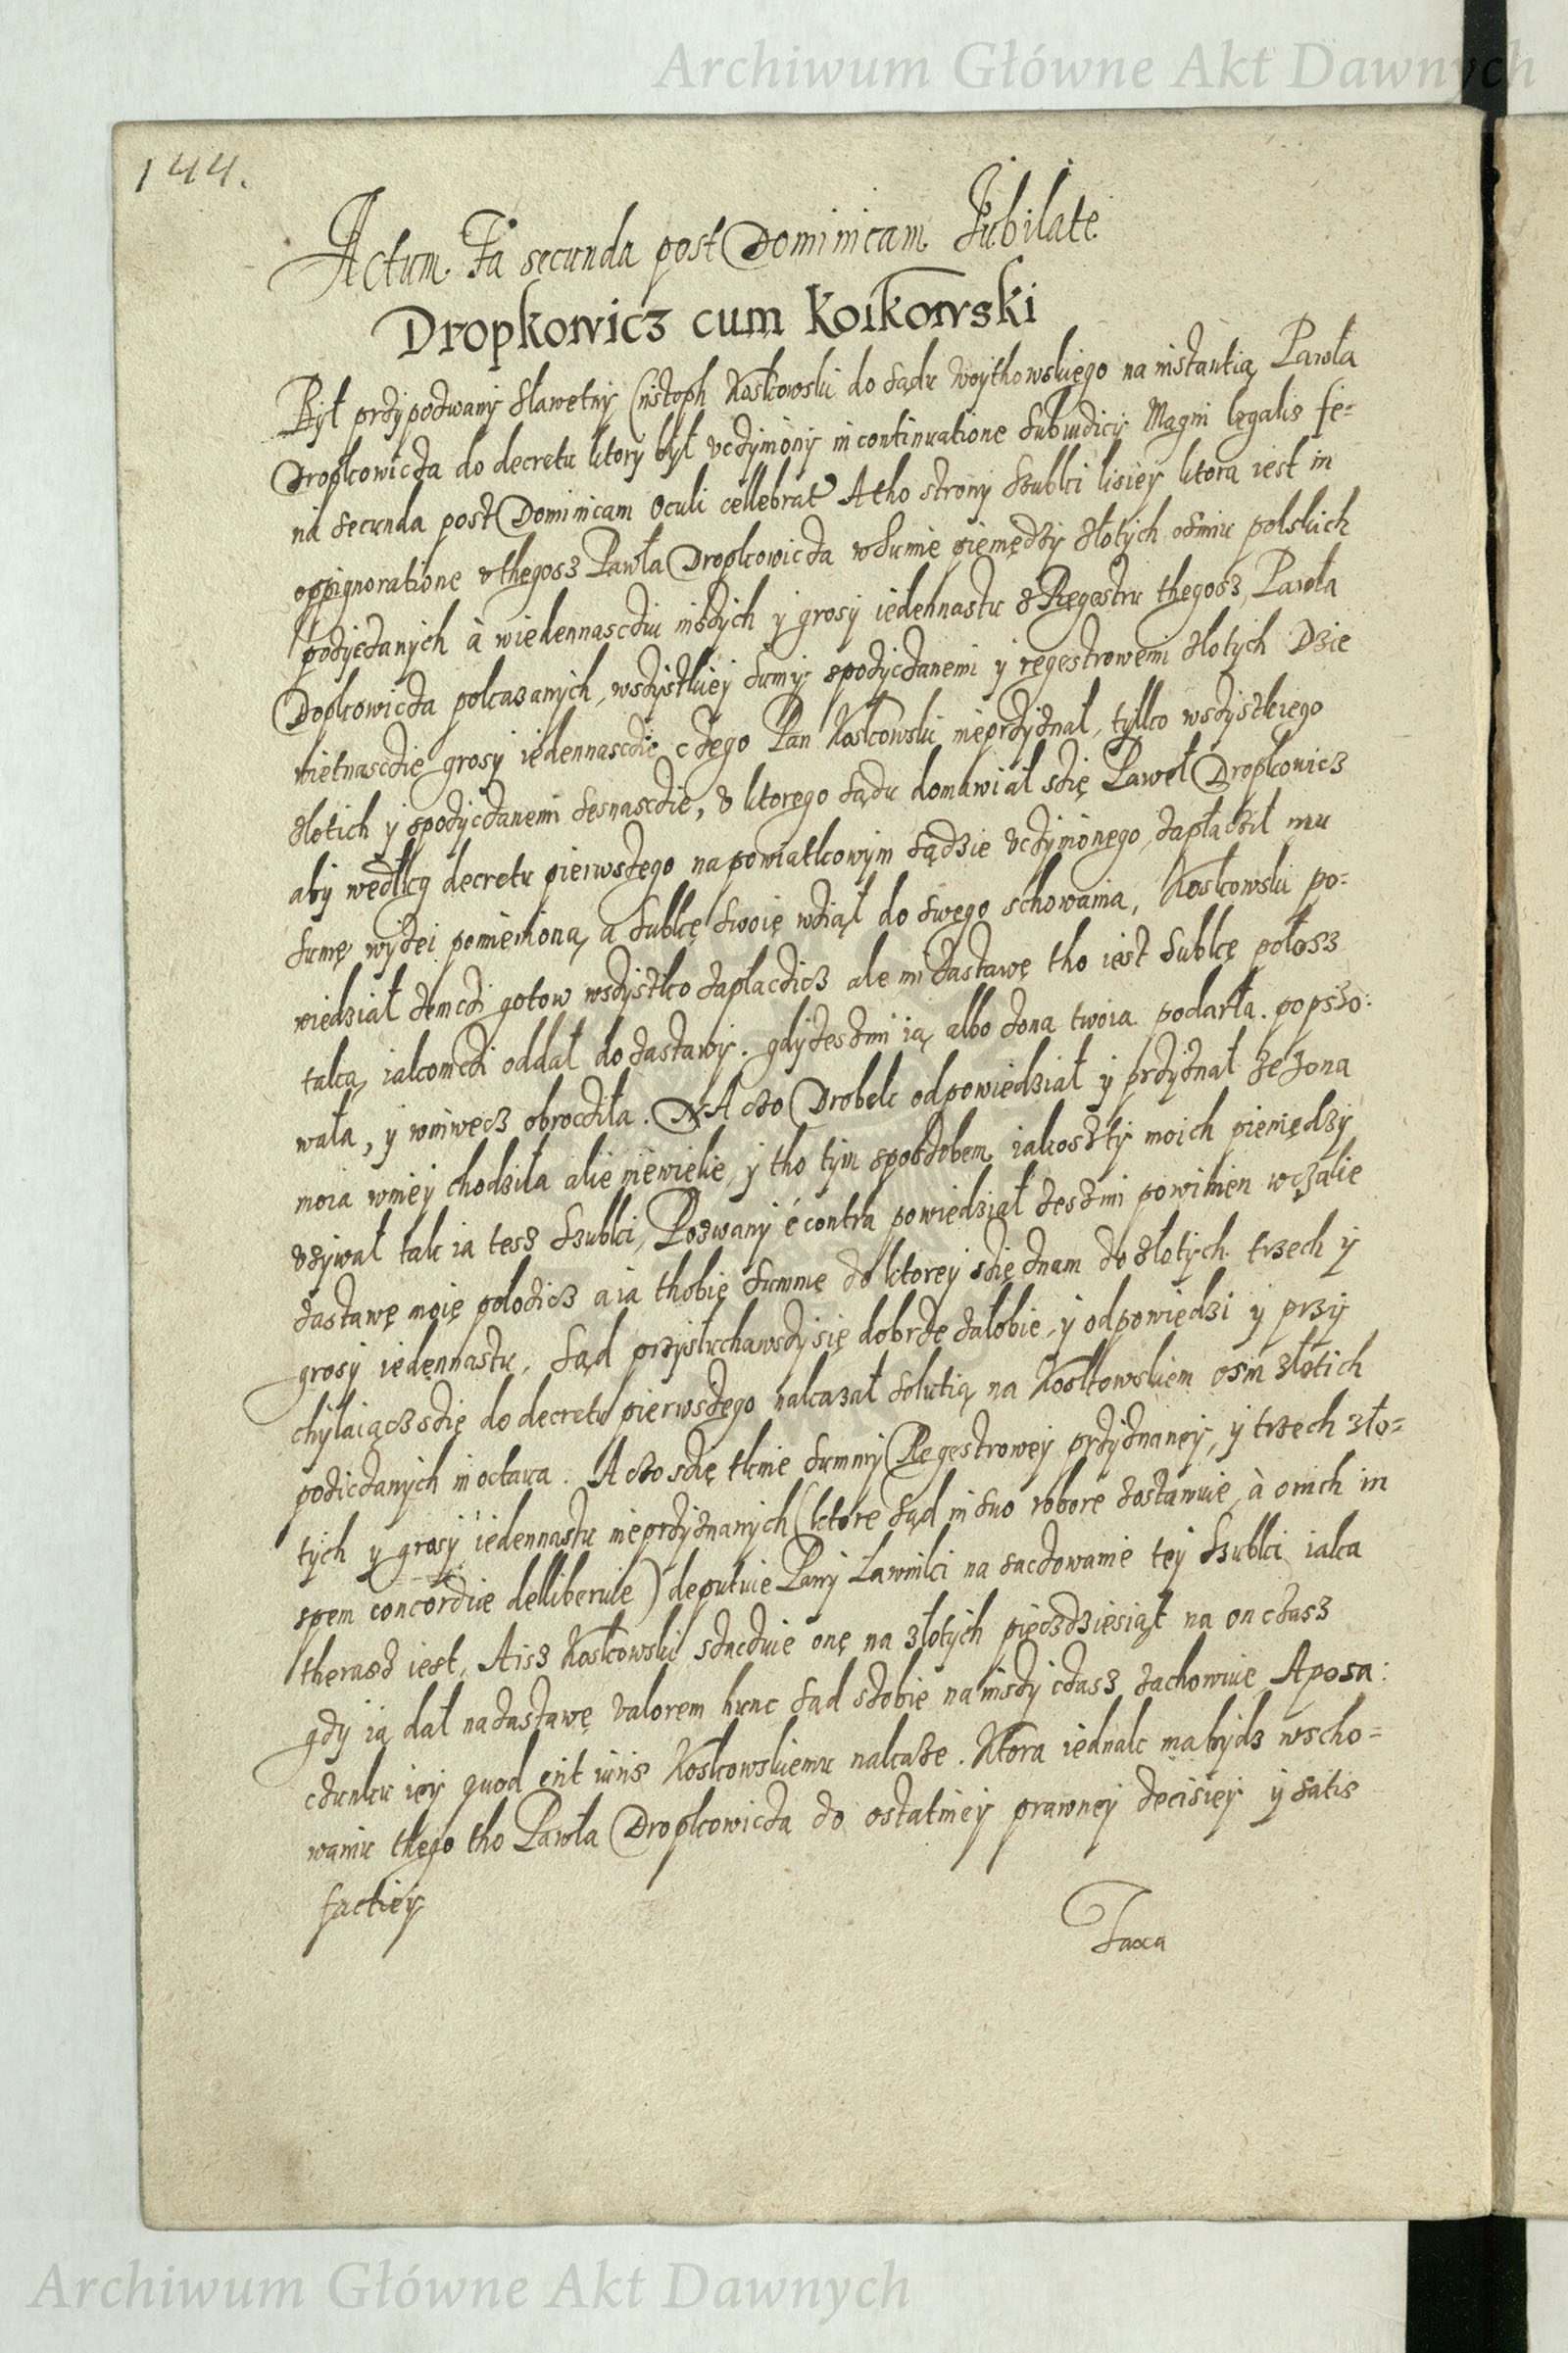 Archiwum Główne Akt Dawnych
144.
Actum Fa secunda post Dominicam Jubilate
Dropkowicz cum Koskowski
Był przypozwany Sławetny Cristoph Koskowski do sądu woytkowskiego na instantią Pawła
Dropkowicza do decretu ktory był vczyniony in continuatione Subiudicij Magni legalis fe-
ria secunda post Dominicam Oculi cellebrat A tho strony Szubki lisiey ktora iest in
oppignoratione v thegosz Pawła Dropkowicza w sumie pieniędzy złotych osmiu polskich
pożyczanych à w iedennasczu inszych y grosy iedennastu z Regestru thegosz Pawła
Dopkowicza pokazanych, wszystkiej sumy spożyczanemi y regestrowemi złotych Dzie
więtnasczie grosy iedennasczie czego Pan Koskowski nieprzyznał, tylko wszystkiego
złotich y spożyczanemi sesnasczie, v ktorego sądu domawiał szię Paweł Dropkowicz
aby wedlug decretu pierwszego na powiatkowym sądzie vczynionego zapłacził mu
sumę wyżei pomieniona, a subkę swoię wziął do swego schowania, Koskowski po-
wiedział żemczi gotow wszystko zaplaczicz ale mi zastawę tho iest subkę połosz
taką iakomczi oddał do zastawy. gdyżeszmi ią albo żona twoia podarła. popszo:
wała, y wniwecz obrocziła. A czo Drobek odpowiedział y przyznał że żona
moia w niey chodziła alie niewielie, y tho tym sposzobem iakoszty moich pieniędzy
vzywał tak ia tesz szubki, Pozwany è contra powiedział żeszmi powinien wczalie
zastawę moię położicz a ia thobię summę do ktorey szię znam do złotych trzech y
grosy iedennastu, Sąd przysłuchawszy się dobrze żałobie, y odpowiedzi y przy
chylaiącz szię do decretu pierwszego nakazał solutią na Koskowskiem osm złotich
pożiczanych in octaua. A czo szię tknie summy Regestrowey przyznaney, y trzech zło-
tych y grosy iedennastu nieprzyznanych (ktore sąd in suo robore zostawuie, à o nich in
spem concordiæ delliberuie) deputuie Pany Lawniki na saczowanie tey szubki iaka
therasz iest, A isz Koskowski szaczuie onę na złotych pięczdziesiąt na on czasz
gdy ią dał na zastawę valorem hunc sąd szobie na inszy czasz zachowuie A po sza:
czunku iey quod erit iuris Koskowskiemu nakaże. Ktora iednak ma bydz w scho-
waniu thego tho Pawła Dropkowicza do ostatniey prawney decisiey y satis
factiey
Taxa
Archiwum Główne Akt Dawnych